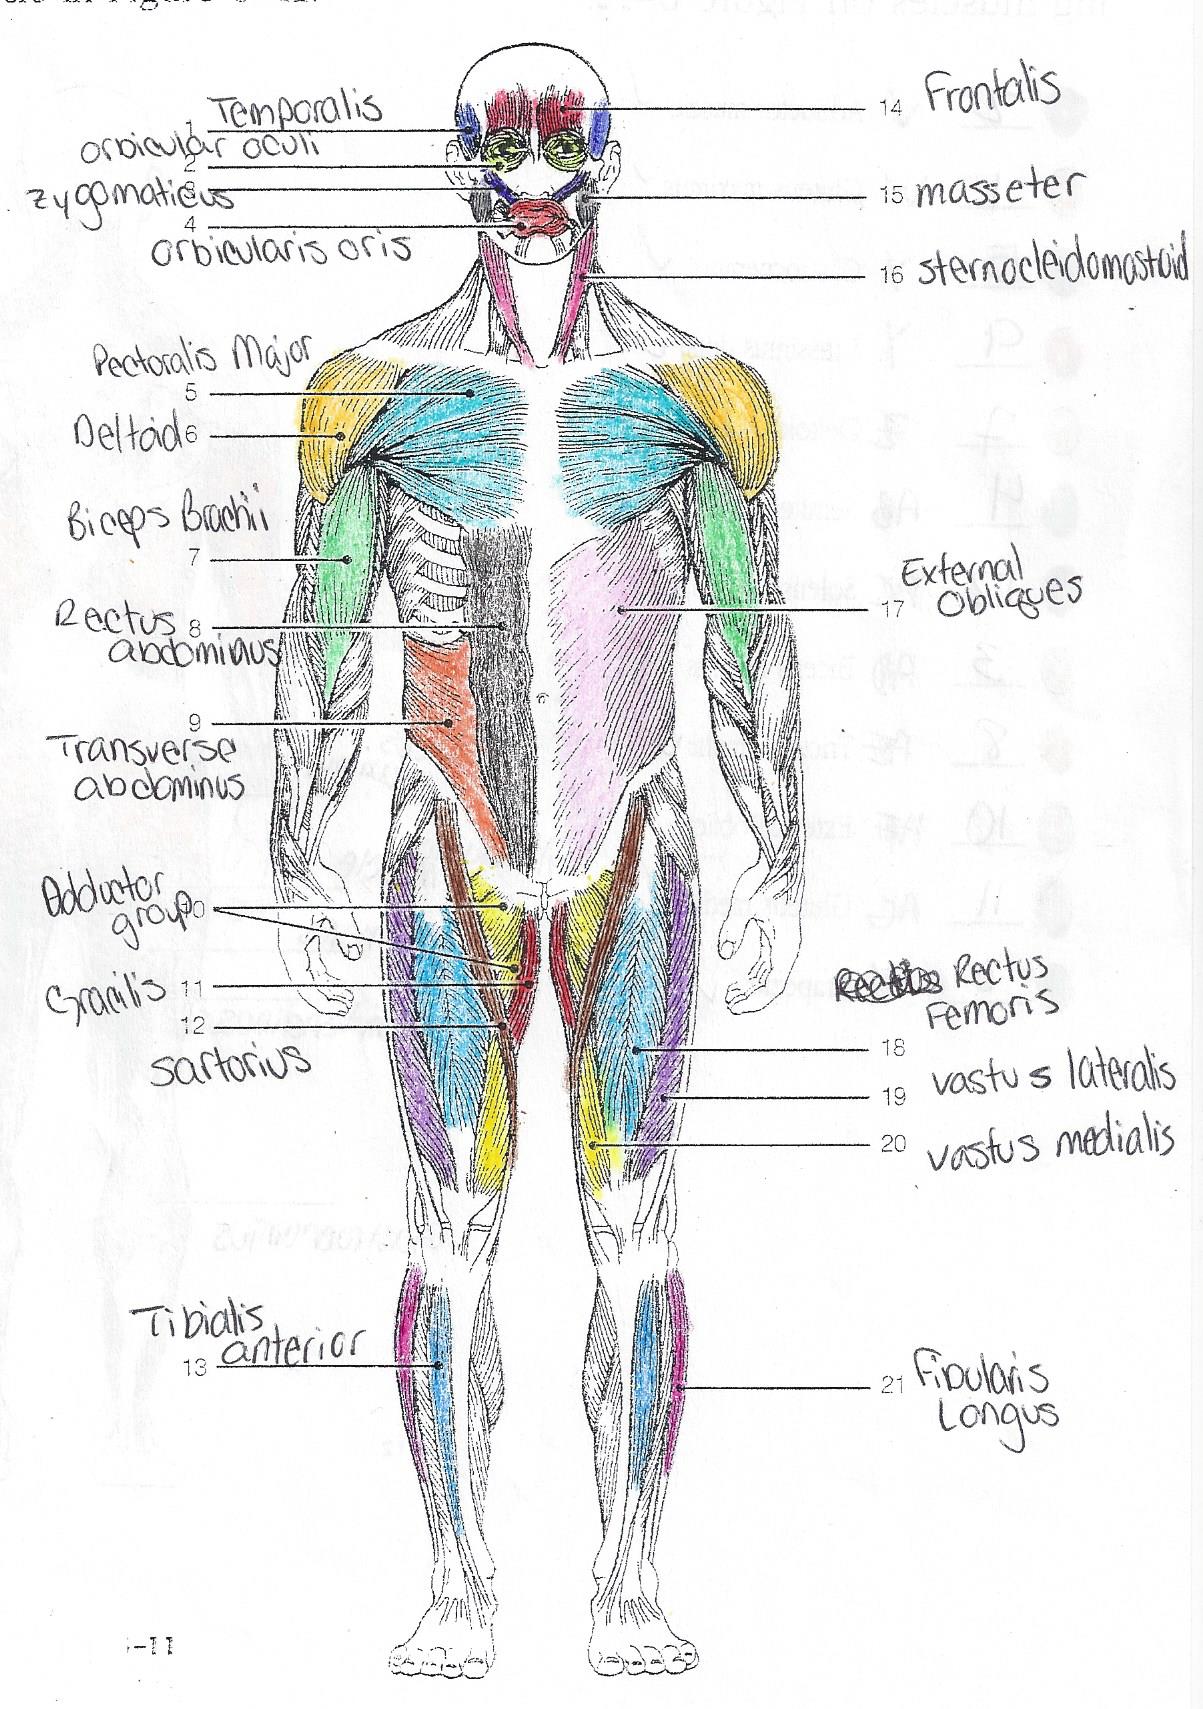 Temporalis
1
orbicular oculi
2
zygomaticus
3
4
orbicularis oris
Pectoralis Major
5
Deltoid 6
Biceps Brachii
7
Rectus 8
abdominus
9
Transverse
abdominus
Adductor
group 10
Gracilis 11
12
sartorius
Tibialis
anterior
13
14 Frontalis
15 masseter
16 sternocleidomastoid
External
Obliques
17
Rectus
Femoris
18
vastus lateralis
19
20 vastus medialis
21 Fibularis
Longus
-11